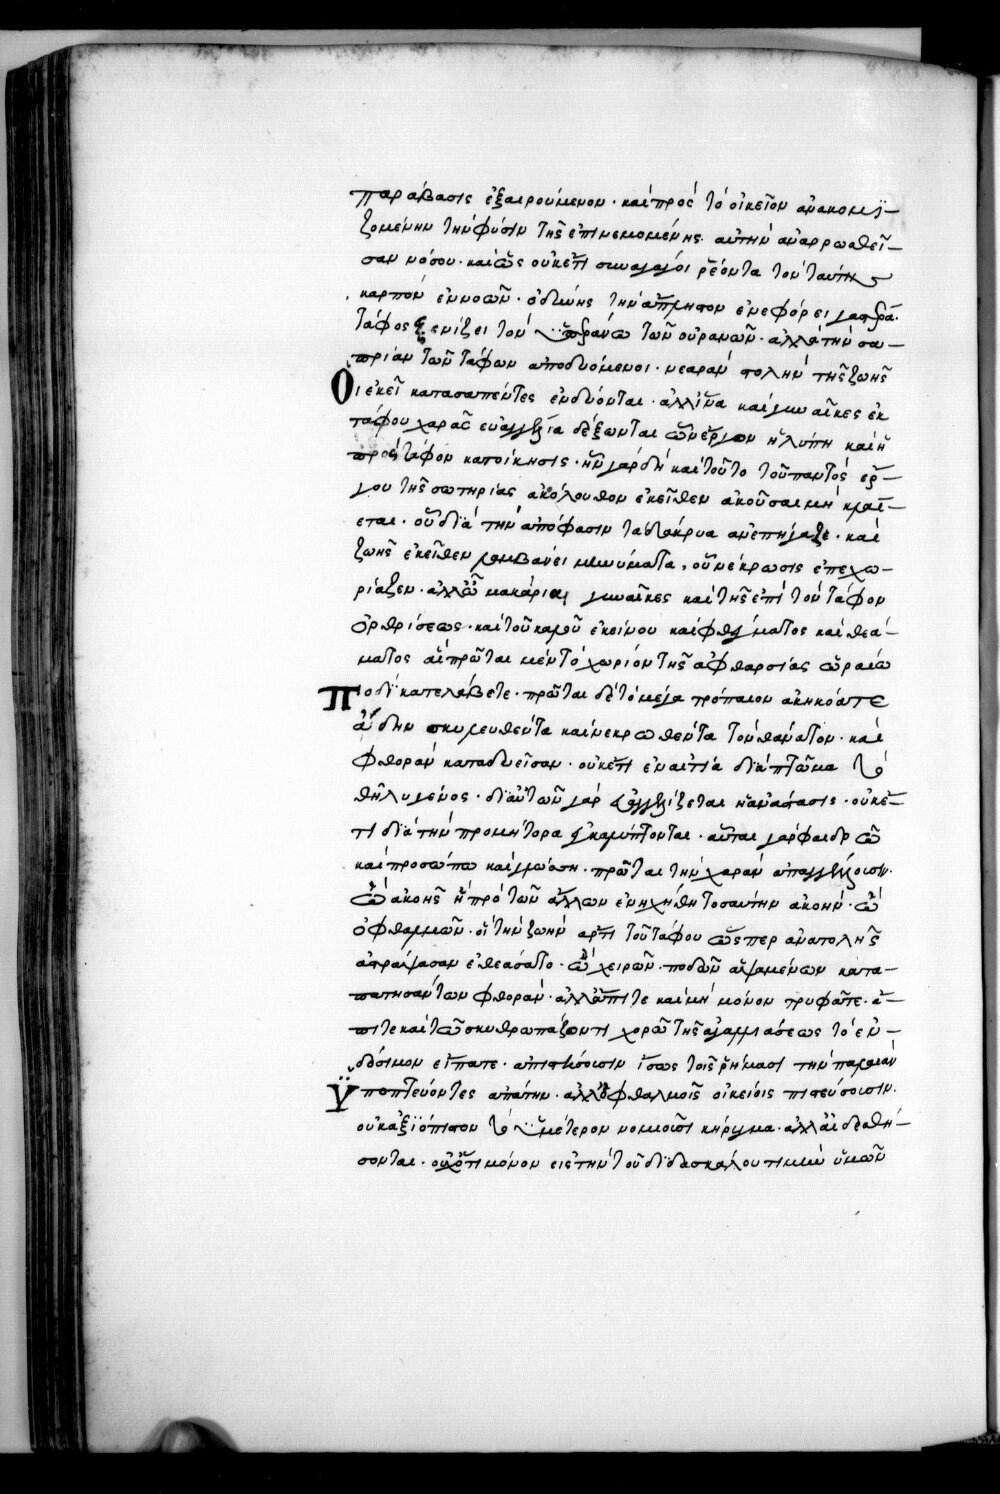 παράβασις ἐξαιρούμενον· καὶ πρὸς τὸ οἰκεῖον ἀνακομϊ–
ζομένην τὴν φύσιν τῆς ἐπινεμομένης αὐτὴν ἀναρρωσθεῖ–
σαν νόσου· καὶ ὡς οὐκέτι συναγάγοι ῥέοντα τὸν ταύτης
καρπὸν ἐννοῶν· ὀδύνης τὴν ἄπληστον ἐνεφόρει γαστέρα·
τάφος ξενίζει τὸν ὑπεράνω τῶν οὐρανῶν· ἀλλὰ τὴν σα–
πρίαν τῶν τάφων ἀποδυόμενοι· νεαρὰν στολὴν τῆς ζωῆς
Οἱ ἐκεῖ κατασαπέντες ἐνδύονται· ἀλλ' ἵνα καὶ γυναῖκες ἐκ
τάφου χαρᾶς εὐαγγέλια δέξωνται ὧν ἔργον ἡ λύπη καὶ ἡ
πρὸς τάφον κατοίκησις· ἦν γὰρ δὴ καὶ τοῦτο τοῦ παντὸς ἔρ–
γου τῆς σωτηρίας ἀκόλουθον ἐκεῖθεν ἀκοῦσαι μὴ κλαί–
εται· οὗ διὰ τὴν ἀπόφασιν τὰ δάκρυα ἀνεπήγαζε· καὶ
ζωῆς ἐκεῖθεν λαμβάνει μηνύματα, οὗ νέκρωσις ἐπεχω–
ρίαζεν· ἀλλ' ὦ μακάριαι γυναῖκες καὶ τῆς ἐπὶ τὸν τάφον
ὀρθρίσεως· καὶ τοῦ καλοῦ ἐκείνου καὶ φθέγματος καὶ θεά–
ματος αἳ πρῶται μὲν τὸ χωρίον τῆς ἀφθαρσίας ὡραίω
Ποδὶ κατελάβετε· πρῶται δὲ τὸ μέγα τρόπαιον ἀκηκόατε
ἅδην σκυλευθέντα καὶ νεκρωθέντα τὸν θάνατον· καὶ
φθορὰν καταδυεῖσαν· οὐκέτι ἐν αἰτία διάπτωμα τὸ
θῆλυ γένος· δι' αὐτῶν γὰρ εὐαγγελίζεται ἡ ἀνάστασις· οὐκέ–
τι διὰ τὴν προμήτορα ἐγκαλύπτονται· αὗται γὰρ φαιδρῶ
καὶ προσώπω καὶ γλώσση· πρῶται τὴν χαρὰν ἀπαγγέλλουσιν·
ὢ ἀκοῆς ἣ πρὸ τῶν ἄλλων ἐνηχήθη τοσαύτην ἀκοήν· ὢ
ὀφθαλμῶν· οἳ τὴν ζωὴν ἄρτι τοῦ τάφου ὥσπερ ἀνατολῆς
ἀστράψασαν ἐθεάσαντο· ὢ χειρῶν· ποδῶν ἁψαμένων κατα–
πατησάντων φθοράν· ἀλλ' ἄπιτε καὶ μὴ μόνον τρυφᾶτε· ἄ–
πιτε καὶ τῶ σκυθρωπάζοντι χορῶ τῆς ἀγαλλιάσεως τὸ ἐν–
δόσιμον εἴπατε· ἀπιστήσουσιν ἴσως τοῖς ῥήμασι τὴν παλαιὰν
Ὑποπτεύοντες ἀπάτην· ἀλλ' ὀφθαλμοῖς οἰκείοις πιστεύσουσιν·
οὐκ ἀξιόπιστον τὸ ὑμέτερον νομιοῦσι κήρυγμα· ἀλλ' αἰδεσθή–
σονται· οὐχ ὅτι μόνον εἰς τὴν τοῦ διδασκάλου τιμὴν ὑμῶν